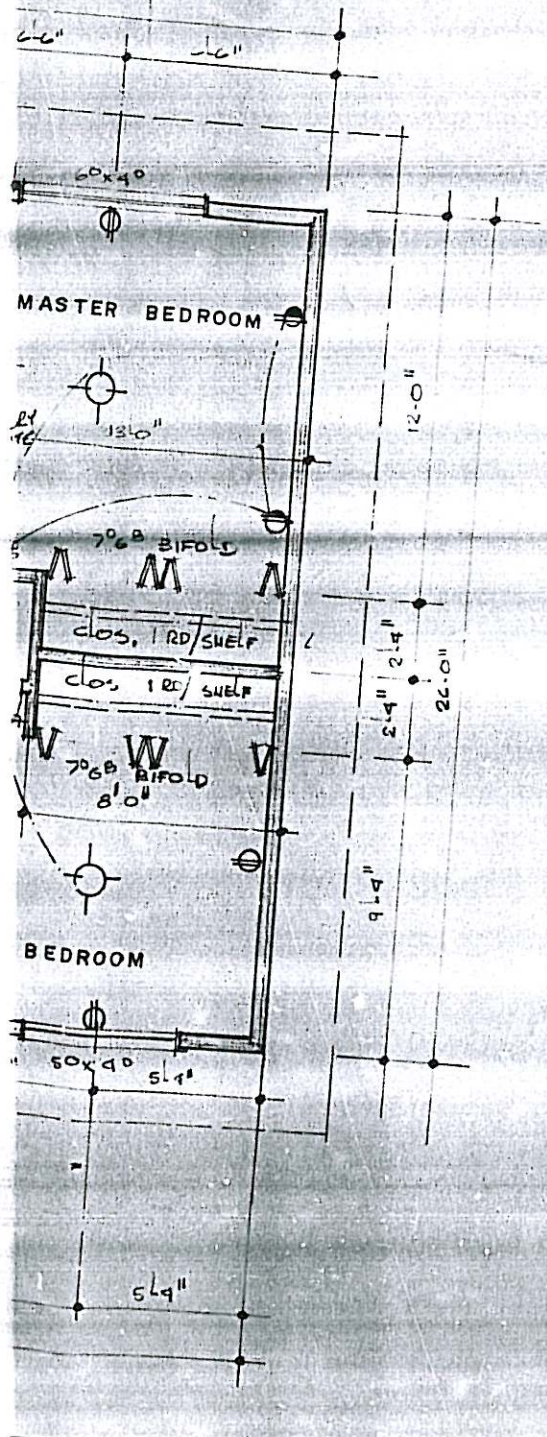 6'-6"
6'-6"
6⁰x4⁰
MASTER BEDROOM
13'0"
12'-0"
7⁰6⁸ BIFOLD
CLOS, 1 RD/SHELF
CLOS, 1 RD/SHELF
2'-4"
2'-4"
26'-0"
7⁰6⁸ BIFOLD
8'0"
9'-4"
BEDROOM
5⁰x4⁰
5'-4"
5'-4"